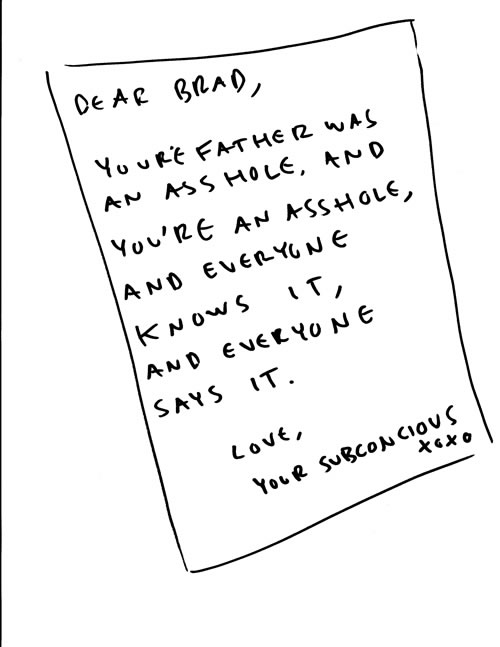 DEAR BRAD,
YOUR'E FATHER WAS
AN ASSHOLE, AND
YOU'RE AN ASSHOLE,
AND EVERYONE
KNOWS IT,
AND EVERYONE
SAYS IT.
LOVE,
YOUR SUBCONCIOUS
XOXO